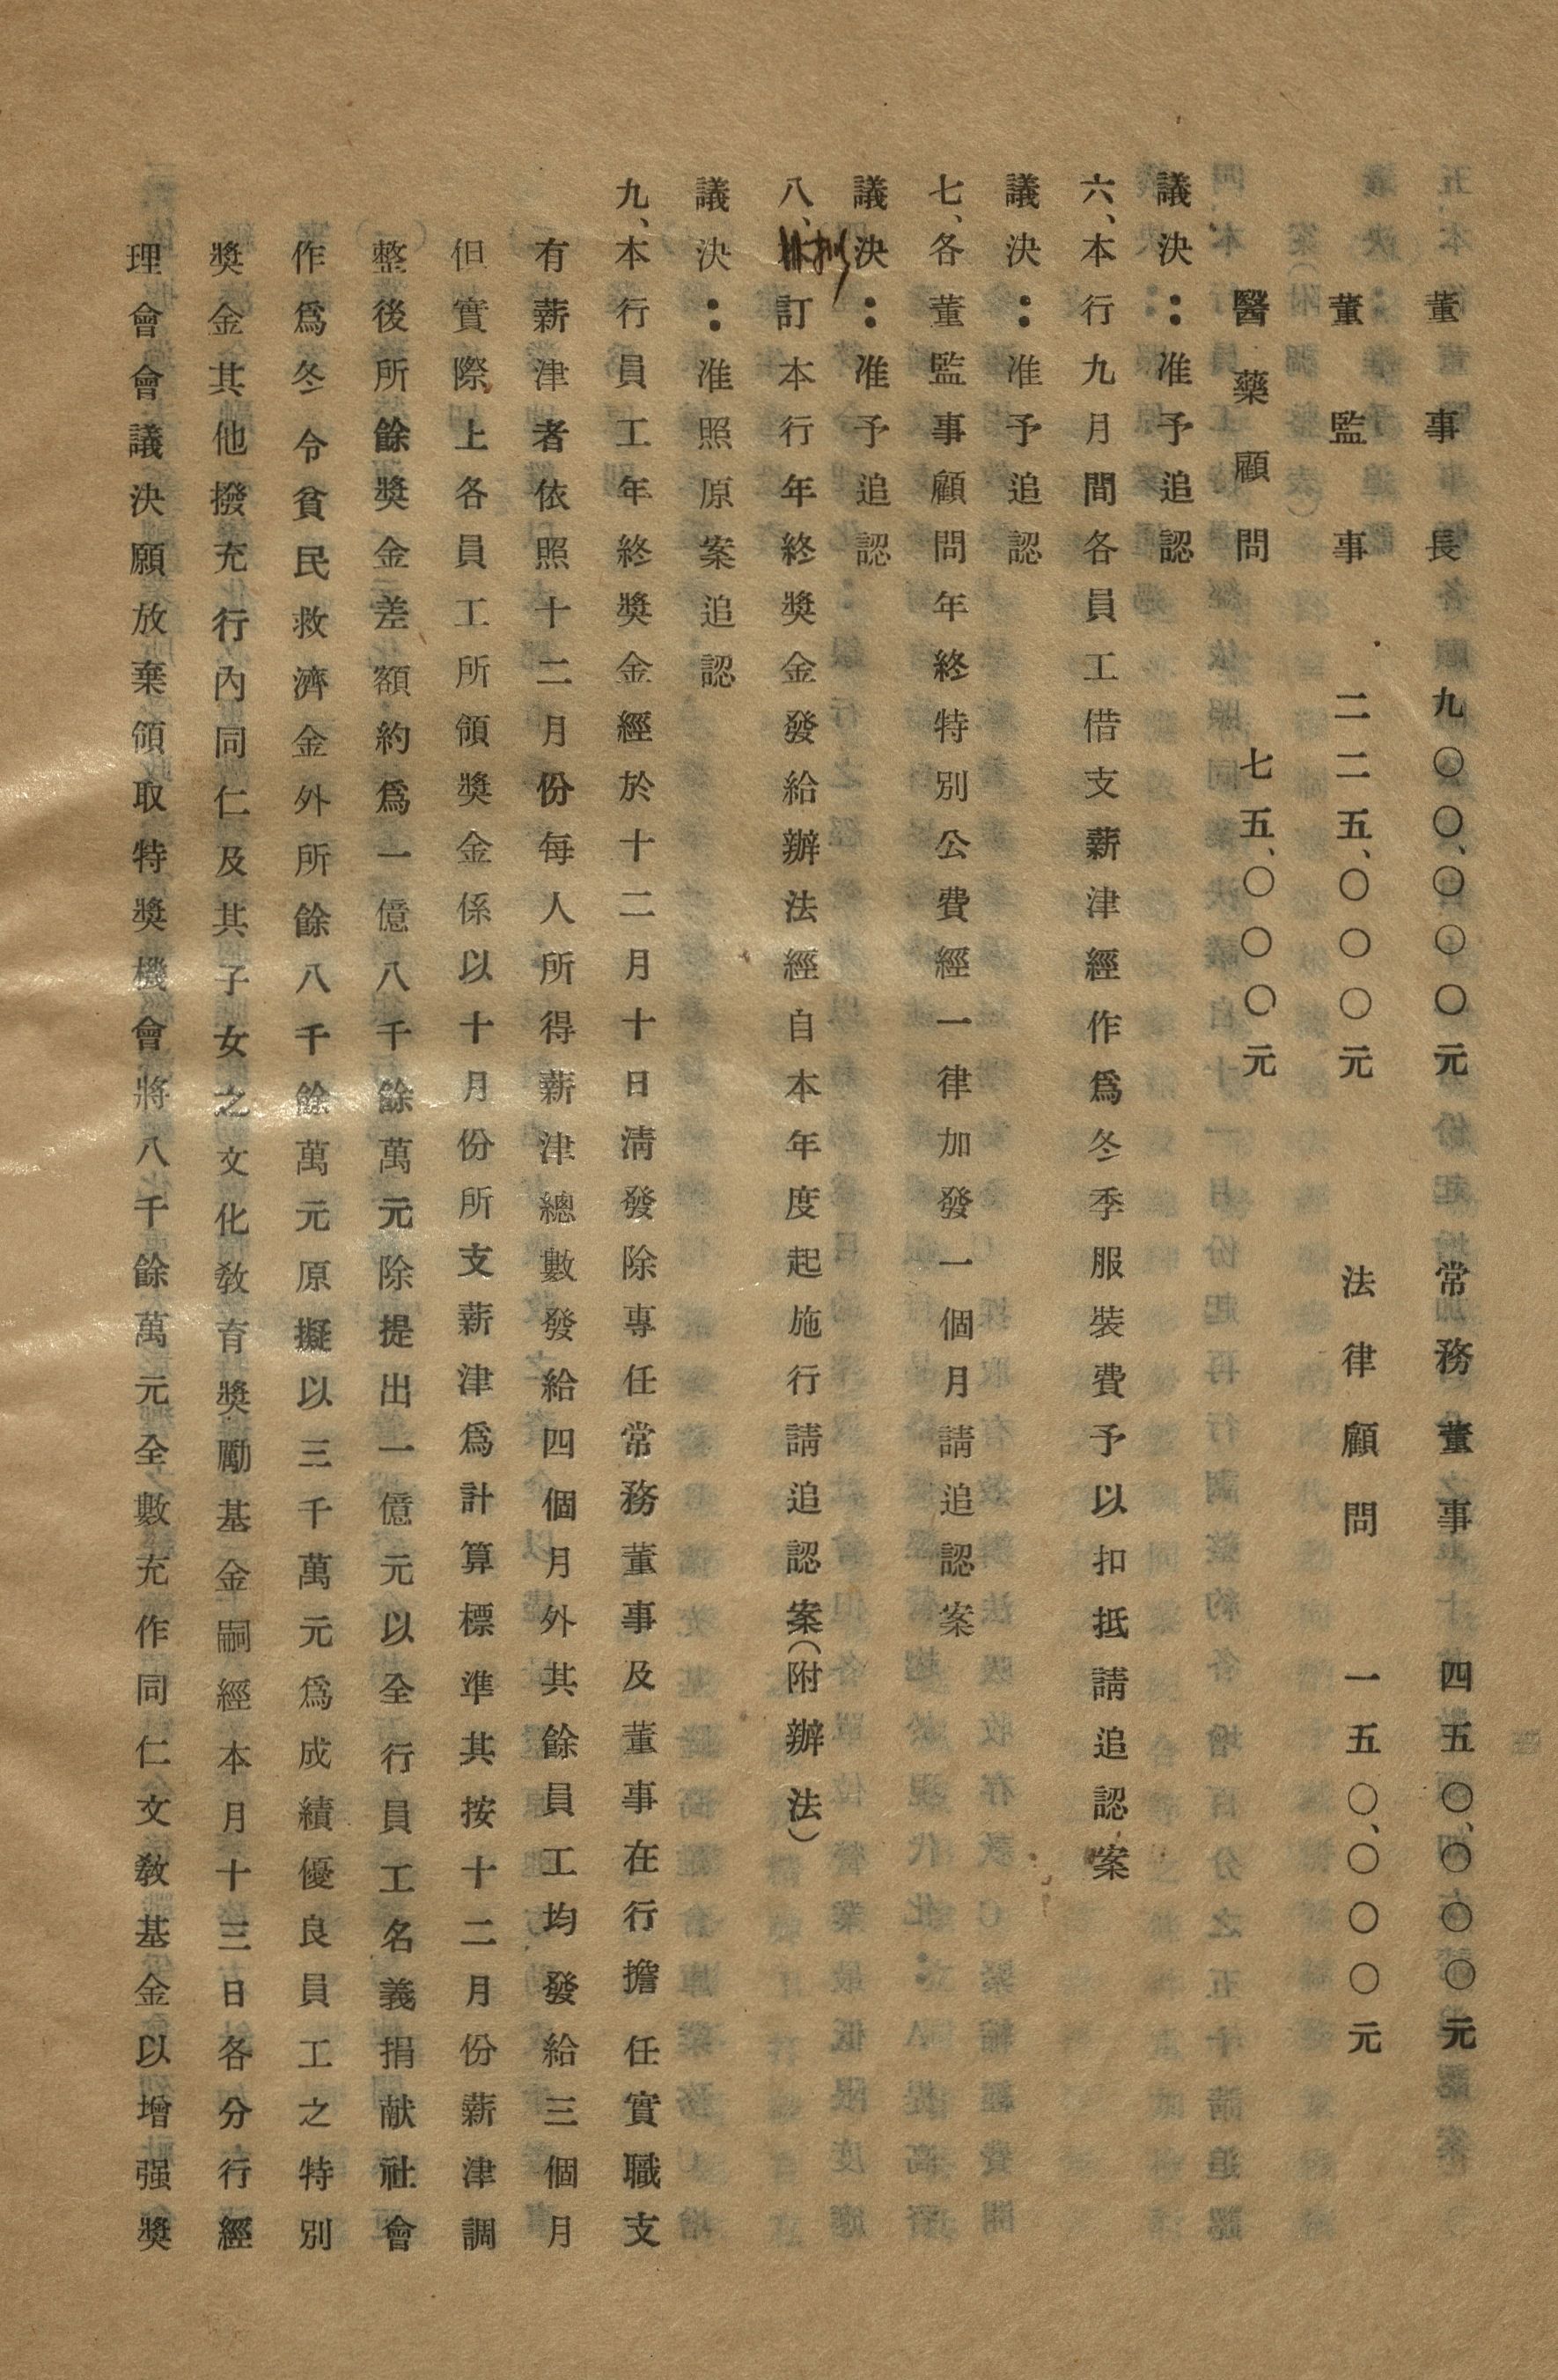 董事長　九〇〇、〇〇〇元　常務董事　四五〇、〇〇〇元
董監事　二二五、〇〇〇元　法律顧問　一五〇、〇〇〇元
醫藥顧問　七五、〇〇〇元
議決：准予追認
六、本行九月間各員工借支薪津經作爲冬季服裝費予以扣抵請追認案
議決：准予追認
七、各董監事顧問年終特別公費經一律加發一個月請追認案
議決：准予追認
八、訂本行年終獎金發給辦法經自本年度起施行請追認案(附辦法)
議決：准照原案追認
九、本行員工年終獎金經於十二月十日淸發除專任常務董事及董事在行擔任實職支
有薪津者依照十二月份每人所得薪津總數發給四個月外其餘員工均發給三個月
但實際上各員工所領獎金係以十月份所支薪津爲計算標準其按十二月份薪津調
整後所餘獎金差額約爲一億八千餘萬元除提出一億元以全行員工名義捐献社會
作爲冬令貧民救濟金外所餘八千餘萬元原擬以三千萬元爲成績優良員工之特別
獎金其他撥充行內同仁及其子女之文化敎育獎勵基金嗣經本月十三日各分行經
理會會議決願放棄領取特獎機會將八千餘萬元全數充作同仁文敎基金以增强獎